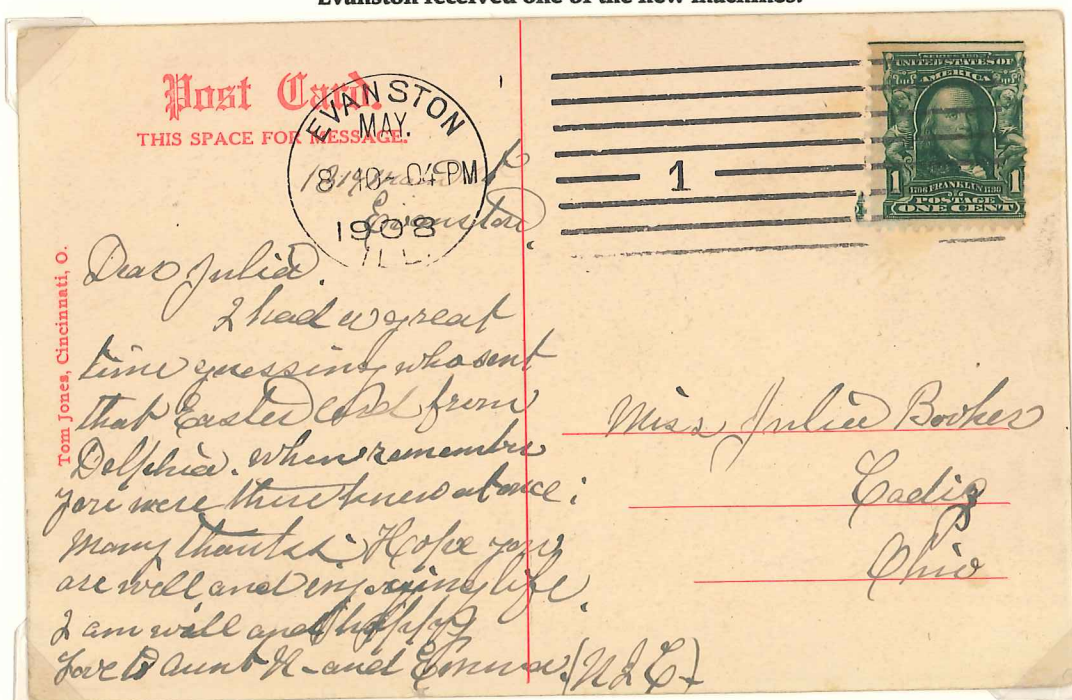 Evanston received one of the new machines.
Post Card.
THIS SPACE FOR MESSAGE.
EVANSTON
MAY.
8-10 - 04 PM
1908
ILL.
1
SERIES 1902
UNITED STATES OF
AMERICA
1 1706 FRANKLIN 1790 1
POSTAGE
ONE CENT
Tom Jones, Cincinnati, O.
Evanston
Dear Julia.
I had a great
time guessing who sent
that Easter Card from
Delphia. when remembre
you were there knew at once;
Many thanks. Hope you
are well and enjoying life.
I am well and happy
Love to Aunt K- and Emma. (N.L.C)
Miss Julia Booker
Cadiz
Ohio